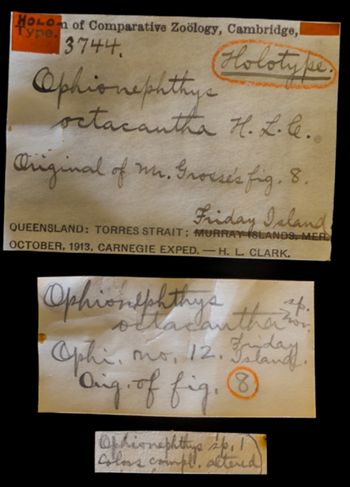 HOLO-
Type.
n of Comparative Zoölogy, Cambridge,
3744.
Holotype.
Ophionephthys
octacantha H. L. C.
Original of Mr. Grosse's fig. 8.
Friday Island
QUEENSLAND: TORRES STRAIT; MURRAY ISLANDS, MER.
OCTOBER, 1913, CARNEGIE EXPED. — H. L. CLARK.
Ophionephthys sp.
octacantha nov.
Ophi. no. 12. Friday Island.
Orig. of fig. 8
Ophionephthys sp. 1
Colors compl. altered